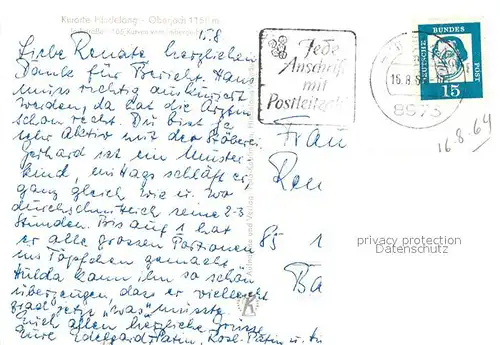 Kurorte Hindelang - Oberjoch 1150 m
15.8
Liebe Renate herzlichen
Danke für Bericht. Hans
muss richtig auskuriert
werden, da hat die Ärztin
schon recht. Du bist ja
sehr Aktiv mit der
Gerhard ist ein Muster
kind, mittags schläft er
ganz gleich wie u. wo
durchschnittlich seine 2-3
Stunden. Bis auf 1 hat
er alle grossen Portionen
ins Töpfchen gemacht.
Hulda kann ihn so schön
überzeugen, das er vielleicht
grad jetzt "was" müsste.
Euch allen herzliche Grüsse
Eure Edelgard-Patin, Rosl-Patin u.
Jede
Anschrift
mit
Postleitzahl
16.8.
8973
DEUTSCHE
BUNDES
POST
15
16.8.64
Frau
Ren
85 1
Ba
privacy protection
Datenschutz